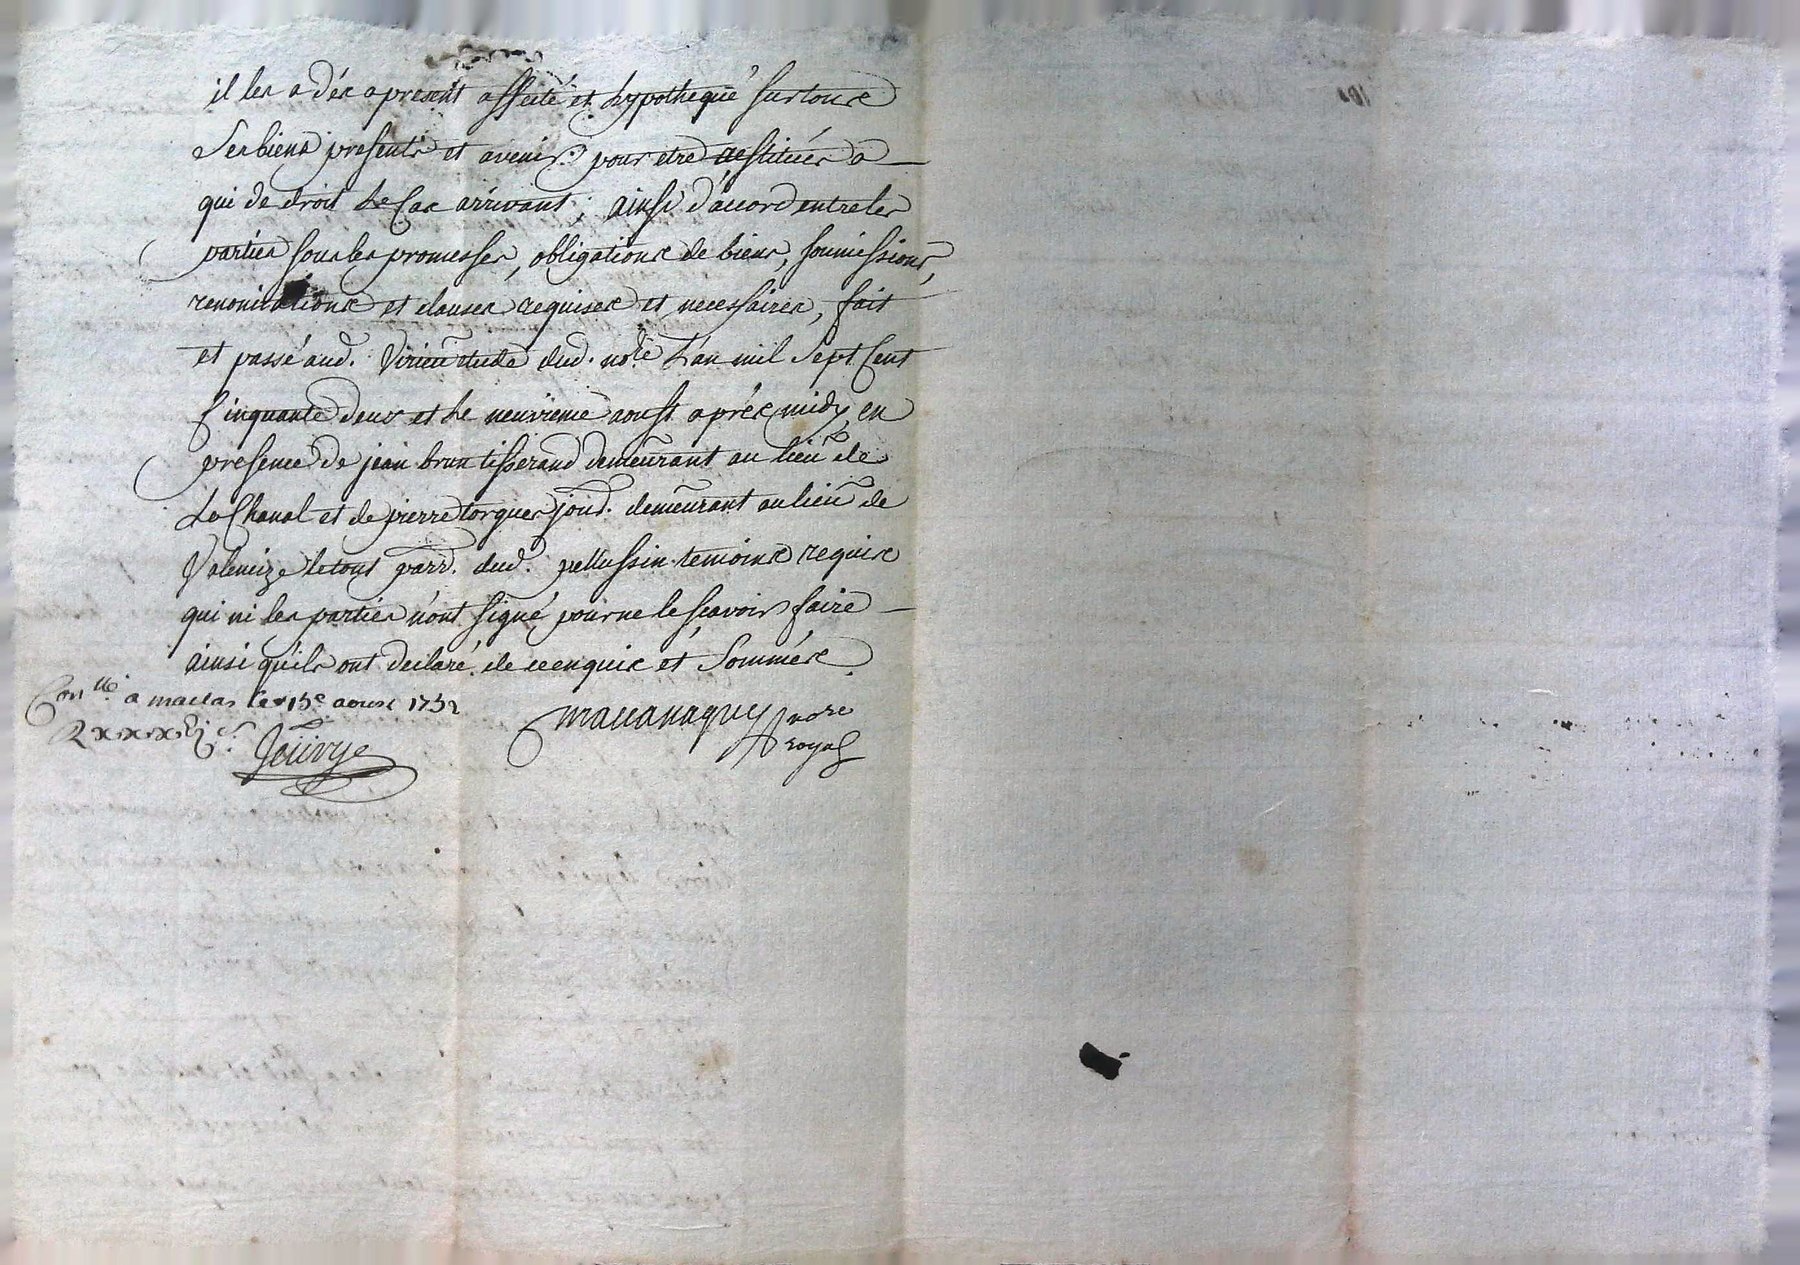 il les a dés a present affecté et hypothequé sur tous
Ses biens presents et avenir pour etre restitués a
qui de droit Le Cas arrivant; ainsi d'accord entre les
parties sous les promesses, obligations de biens, soumissions,
renonciations et clauses requises et necessaires, fait
et passé aud. Virieu etude dud. no.re L'an mil Sept Cent
Cinquante deux et Le neuvieme aoust aprés midy, en
presence de jean brun tisserand demeurant au lieu de
La Chanal et de pierre torgues jour. demeurant au lieu de
Valencize le tout parr. dud. pellussin temoins requis
qui ni les parties n'ont signé pour ne le scavoir faire
ainsi qu'ils ont declaré de ce enquis et Sommés
Con.llé a maclas le 15e aoust 1752
Maccanaguy nore
royal